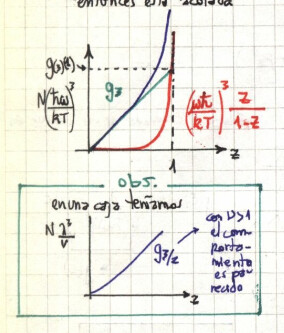 entonces está acotada
g₃(1)
N(ħω/kT)³
g₃
(ωħ/kT)³ z/1-z
1
z
obs.
en una caja teníamos
N λ³/V
g₃/₂
z
con D>1
el com
porta-
miento
es pa
recido